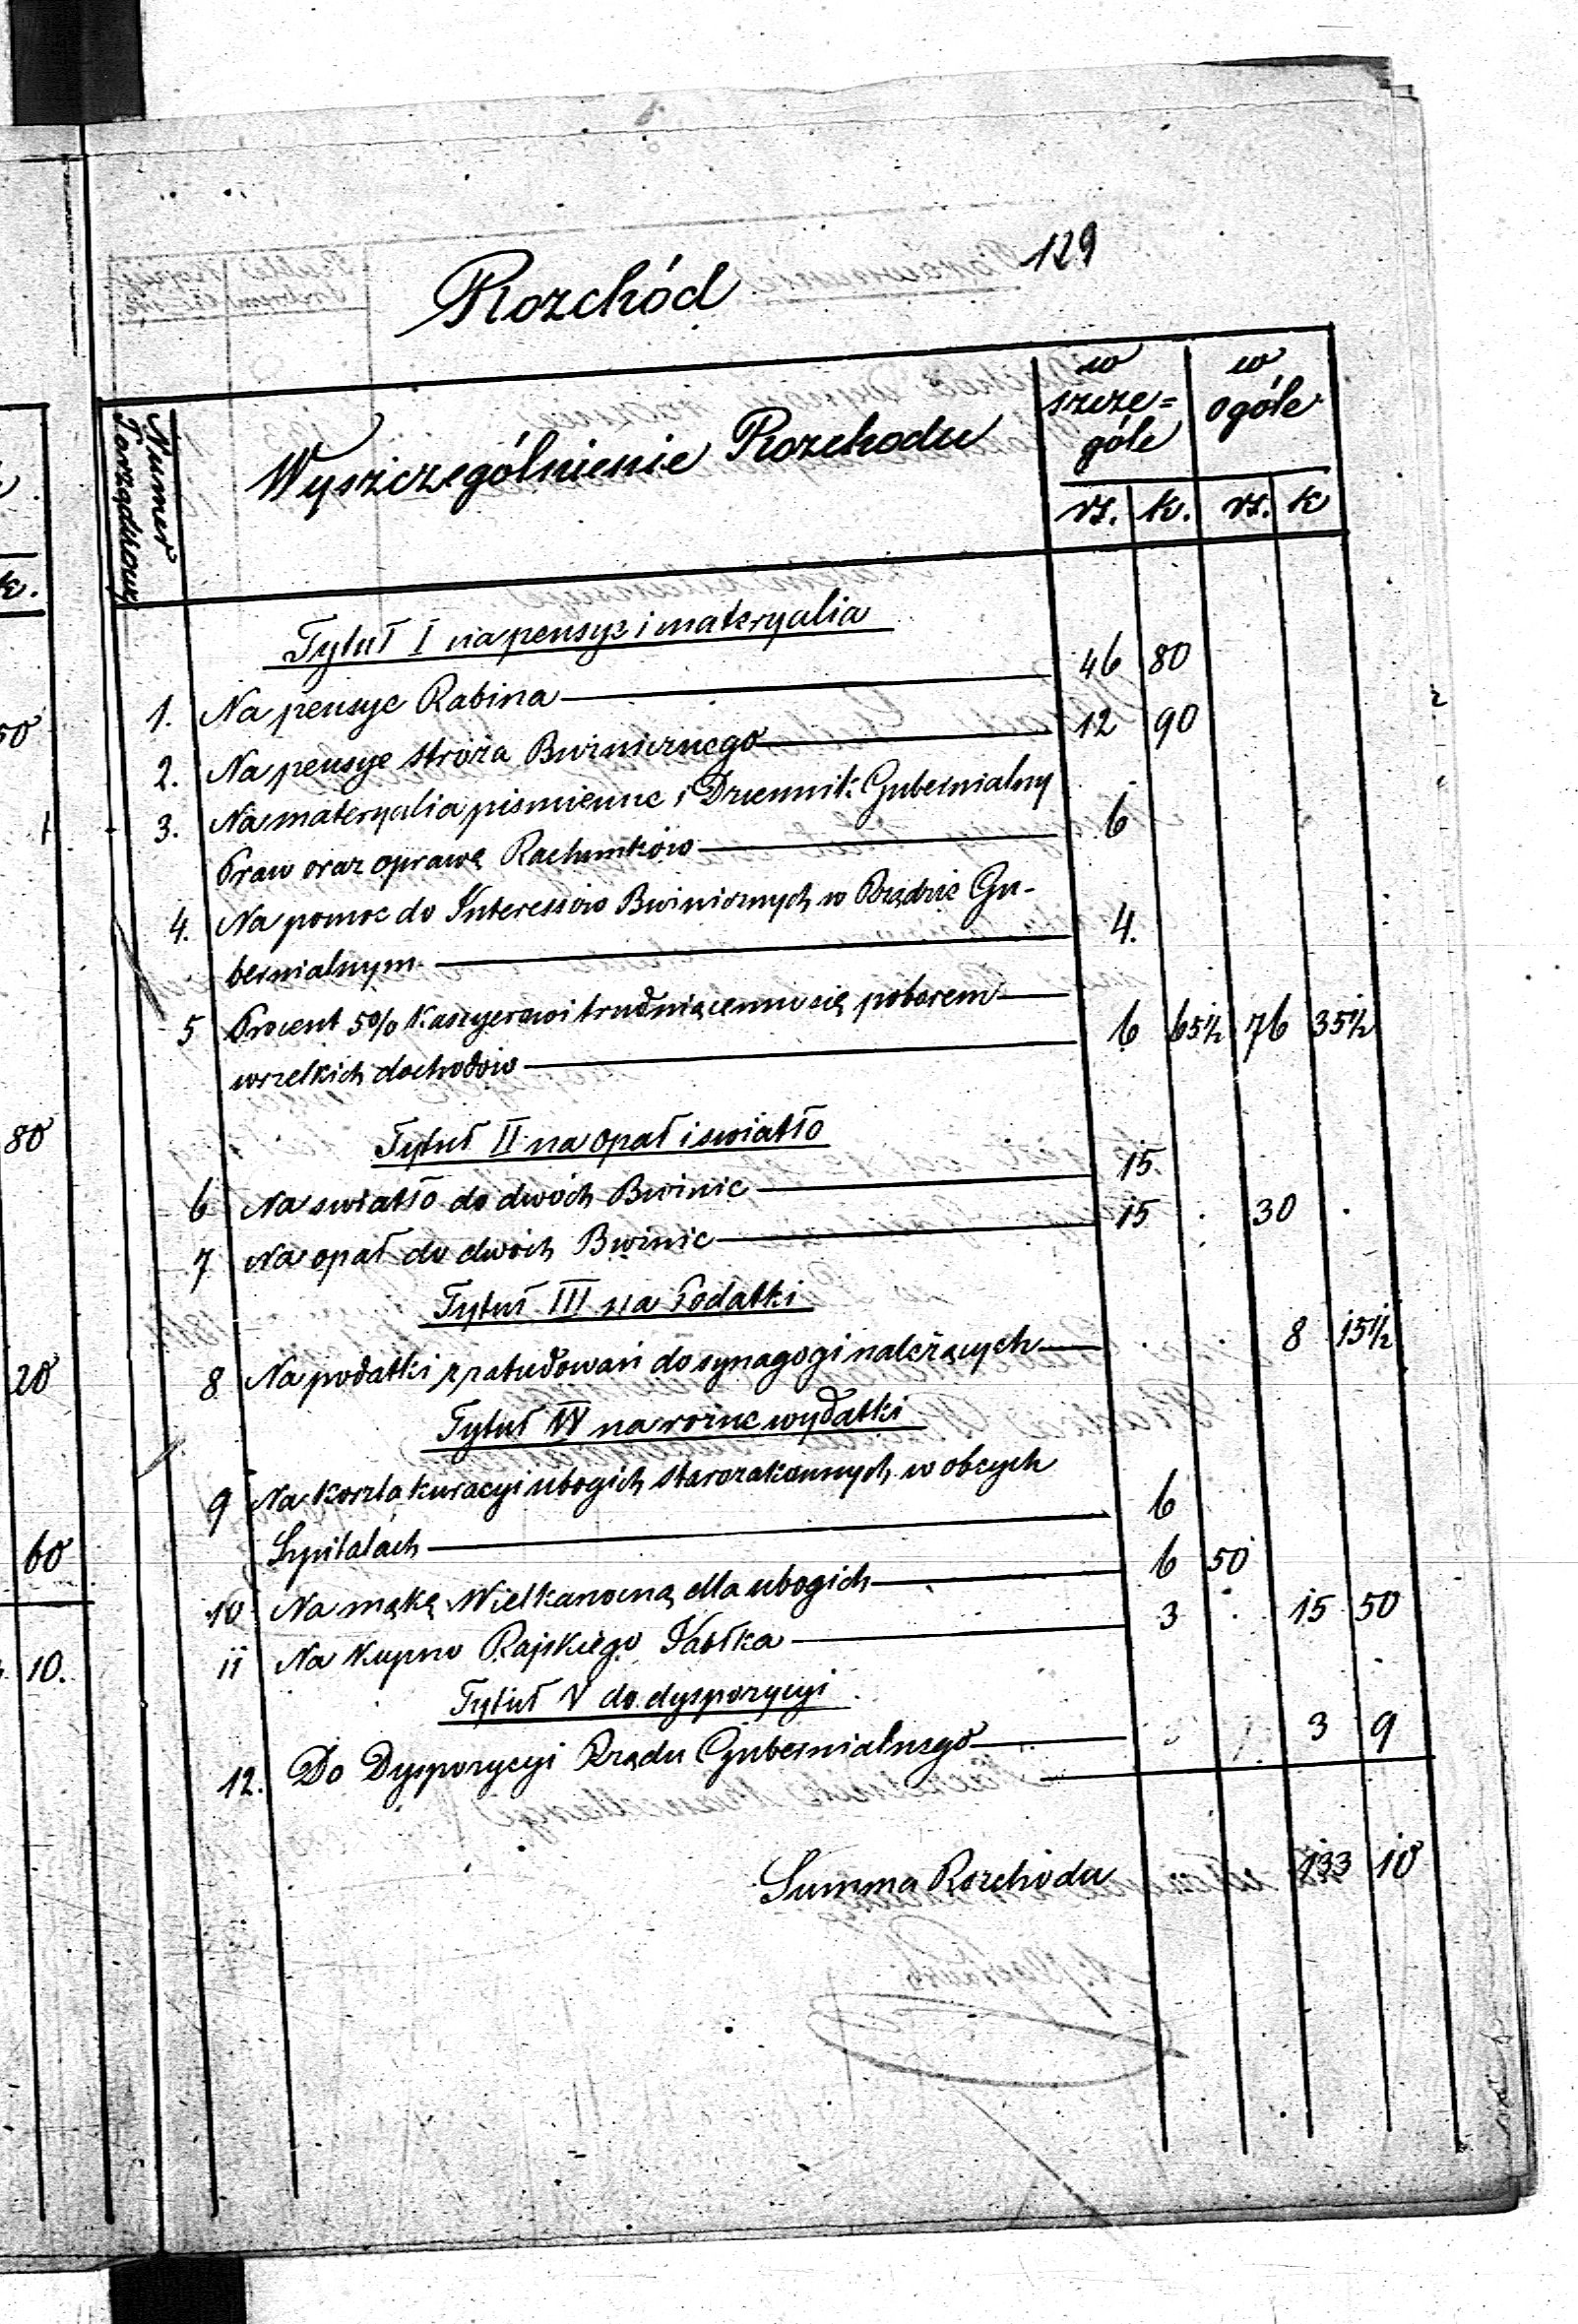 129
Rozchód
Numer Porządkowy
Wyszczególnienie Rozchodu
w szcze=
góle
w ogóle
rs. k. rs. k
Tytuł I na pensye i materyalia
1. Na pensye Rabina 46 80
2. Na pensye stróża Bużnicznego 12 90
3. Na materyalia piśmienne i Dziennik Gubernialny
Praw oraz oprawę Rachunków 6
4. Na pomoc do Interessów Bużnicznych w Rządzie Gu-
bernialnym 4.
5 Procent 5% Kassyerowi trudniącemu się poborem
wszelkich dochodów 6 65½ 76 35½
Tytuł II na opał i swiatło
6 Na swiatło do dwóch Bużnic 15.
7 Na opał do dwóch Bużnic 15 . 30 .
Tytuł III na Podatki
8 Na podatki z zabudowań do synagogi należących . . 8 15½
Tytuł IV na rożne wydatki
9 Na koszta kuracyi ubogich starozakonnych w obcych
Szpitalach 6
10 Na mąkę Wielkanocną dla ubogich 6 50
11 Na kupno Rajskiego Jabłka 3 . 15 50
Tytuł V do dyspozycyi
12. Do Dyspozycyi Rządu Gubernialnego 3 9
Summa Rozchodu 133 10
k.
50
80
20
60
10.